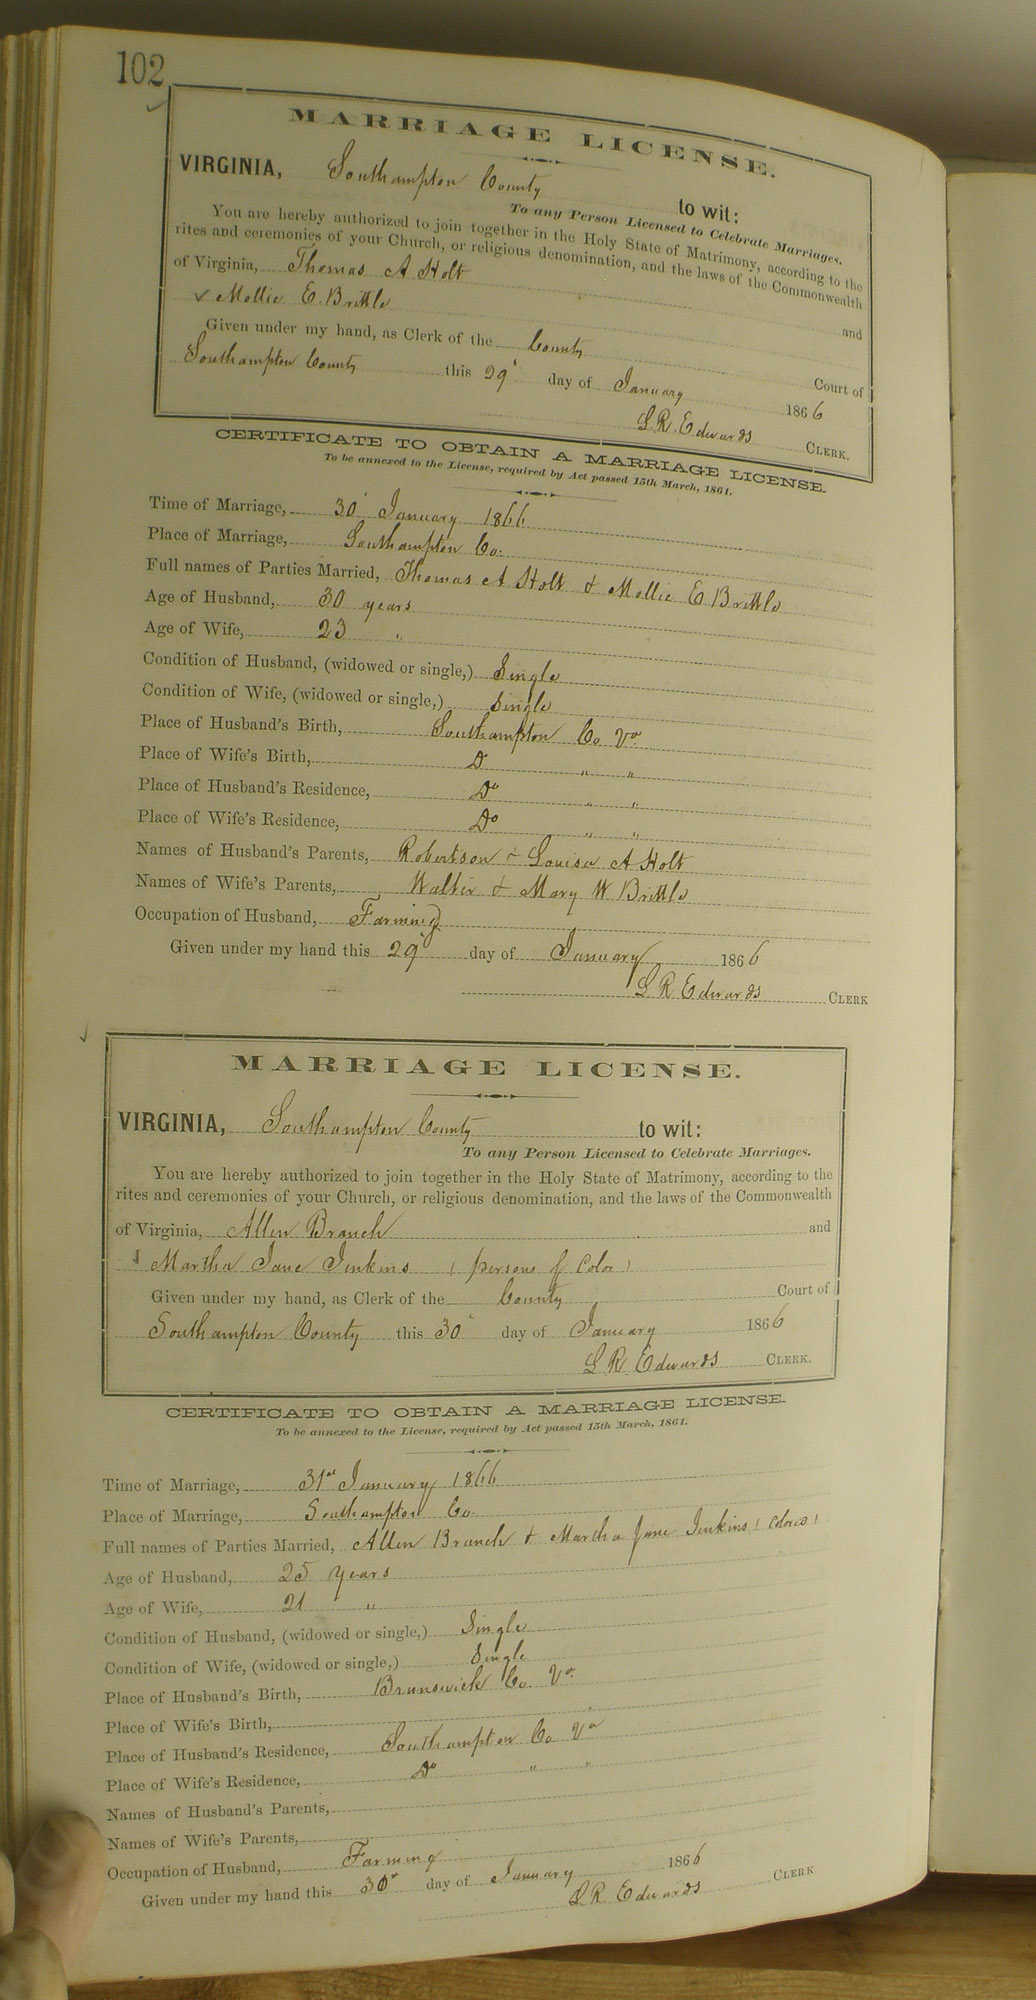 102
MARRIAGE LICENSE.
VIRGINIA, Southampton County to wit:
To any Person Licensed to Celebrate Marriages.
You are hereby authorized to join together in the Holy State of Matrimony, according to the
rites and ceremonies of your Church, or religious denomination, and the laws of the Commonwealth
of Virginia, Thomas A Holt and
✓ Mollie E Brittle
Given under my hand, as Clerk of the County Court of
Southampton County this 29' day of January 1866
L R. Edwards CLERK.
CERTIFICATE TO OBTAIN A MARRIAGE LICENSE.
To be annexed to the License, required by Act passed 15th March, 1861.
Time of Marriage, 30' January 1866
Place of Marriage, Southampton Co.
Full names of Parties Married, Thomas A Holt & Mollie E Brittle
Age of Husband, 30 years
Age of Wife, 23 "
Condition of Husband, (widowed or single,) Single
Condition of Wife, (widowed or single,) Single
Place of Husband's Birth, Southampton Co Va
Place of Wife's Birth, Do " "
Place of Husband's Residence, Do " "
Place of Wife's Residence, Do " "
Names of Husband's Parents, Robertson & Louisa A Holt
Names of Wife's Parents, Walter & Mary W Brittle
Occupation of Husband, Farming
Given under my hand this 29' day of January 1866
L R Edwards CLERK
MARRIAGE LICENSE.
VIRGINIA, Southampton County to wit:
To any Person Licensed to Celebrate Marriages.
You are hereby authorized to join together in the Holy State of Matrimony, according to the
rites and ceremonies of your Church, or religious denomination, and the laws of the Commonwealth
of Virginia, Allen Branch and
Martha Jane Jenkins (persons of Color)
Given under my hand, as Clerk of the County Court of
Southampton County this 30' day of January 1866
L R. Edwards CLERK.
CERTIFICATE TO OBTAIN A MARRIAGE LICENSE.
To be annexed to the License, required by Act passed 15th March, 1861.
Time of Marriage, 31st January 1866
Place of Marriage, Southampton Co.
Full names of Parties Married, Allen Branch & Martha Jane Jenkins (Colored)
Age of Husband, 25 years
Age of Wife, 21 "
Condition of Husband, (widowed or single,) Single
Condition of Wife, (widowed or single,) Single
Place of Husband's Birth, Brunswick Co. Va
Place of Wife's Birth,
Place of Husband's Residence, Southampton Co Va
Place of Wife's Residence, Do " "
Names of Husband's Parents,
Names of Wife's Parents,
Occupation of Husband, Farming
Given under my hand this 30' day of January 1866
L R. Edwards CLERK